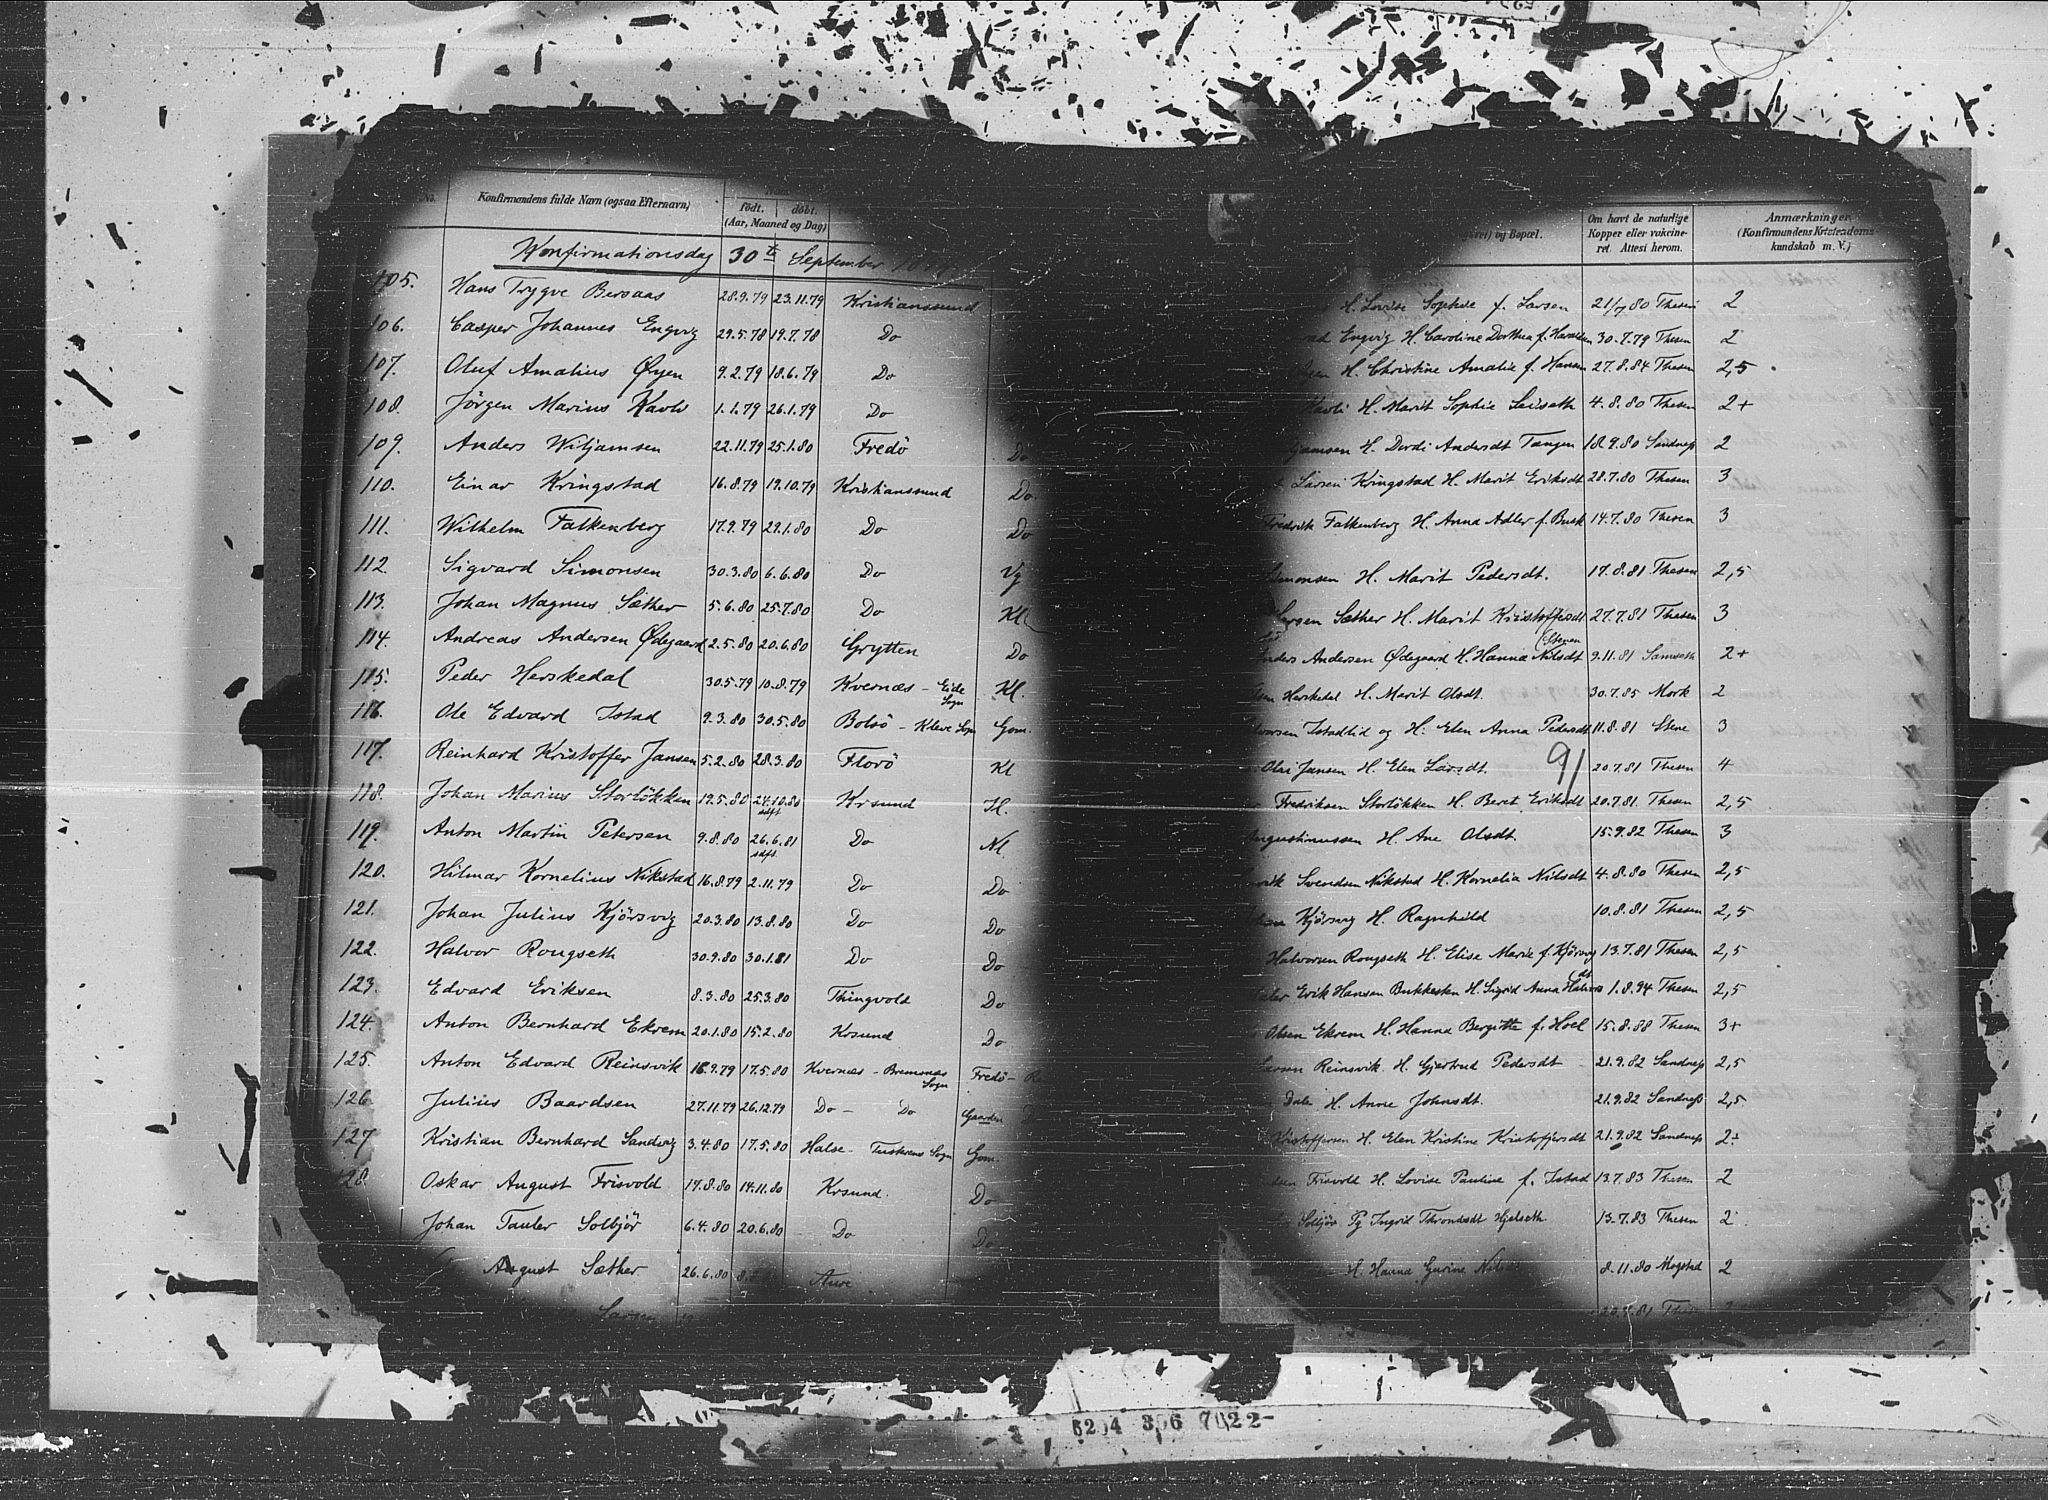 No. Konfirmandens fulde Navn (ogsaa Efternavn) født. døbt. (Aar, Maaned og Dag) og Bopæl. Om havt de naturlige Kopper eller vakcineret. Attest herom. Anmærkninger (Konfirmandens Kristendomskundskab m. V.)
Konfirmationsdag 30te September
105. Hans Trygve Bersaas 28.9.79 23.11.79 Kristianssund H. Lovise Sophie f. Larsen 21/7 80 Thesen 2
106. Casper Johannes Engvig 29.5.78 19.7.78 Do Engvig H. Caroline Dorthea f. 30.7.79 Thesen 2
107. Oluf Amalius Øyen 9.2.79 18.6.79 Do H. Christine Amalie f. Hansen 27.8.84 Thesen 2,5
108. Jörgen Marius Kavli 1.1.79 26.1.79 Do Kavli H. Marit Sophie 4.8.80 Thesen 2+
109. Anders Wiljamsen 22.11.79 25.1.80 Fredö Do H. Dordi Andersdt Tangen 18.9.80 Sandnes 2
110. Einar Kringstad 16.8.79 19.10.79 Kristianssund Do Larsen Kringstad H. Marit Eriksdt 28.7.80 Thesen 3
111. Wilhelm Falkenberg 17.9.79 29.1.80 Do Do Fredrik Falkenberg H. Anna Adler f. Busk 14.7.80 Thesen 3
112. Sigvard Simonsen 30.3.80 6.6.80 Do Vg Simonsen H. Marit Pedersdt. 17.8.81 Thesen 2,5
113. Johan Magnus Sæther 5.6.80 25.7.80 Do Kl Larsen Sæther H. Marit Kristoffersdt 27.7.81 Thesen 3
114. Andreas Andersen Ødegaard 2.5.80 20.6.80 Grytten Do Anders Andersen Ødegaard H. Hanna Nilsdt Stenen 9.11.81 2+
115. Peder Herskedal 30.5.79 10.8.79 Kvernæs - Eide Sogn Kl. Herskedal H. Marit Olsdt. 30.7.85 Mork 2
116. Ole Edvard Istad 9.3.80 30.5.80 Bolsö - Kleve Sogn Gom. Istadlid og H. Elen Anna Pedersdt 11.8.81 Stene 3
117. Reinhard Kristoffer Jansen 5.2.80 28.3.80 Florö Kl Jansen H. Elen Larsdt. 20.7.81 Thesen 4
91
118. Johan Marius Storlökken 19.5.80 24.10.80 Krsund Kl. Fredriksen Storlökken H. Beret Eriksdt 20.7.81. Thesen 2,5
119. Anton Martin Petersen 9.8.80 26.6.81 Do Nl. Augustinussen H. Ane Olsdt. 15.9.82 Thesen 3
120. Hilmar Kornelius Nikstad 16.8.79 2.11.79 Do Do Svendsen Nikstad H. Kornelia Nilsdt 4.8.80 Thesen 2,5
121. Johan Julius Kjörsvig 20.3.80 13.8.80 Do Do Kjörsvig H. Ragnhild 10.8.81 Thesen 2,5
122. Halvor Rongseth 30.9.80 30.1.81 Do Do Halvorsen Rongseth H. Elise Marie f. Kjörsvig 13.7.81 Thesen 2,5
123. Edvard Eriksen 8.3.80 25.3.80 Thingvold Do Erik Hansen H. Sigrid Anna 1.8.94 Thesen 2,5
124. Anton Bernhard Ekrem 20.1.80 15.2.80 Krsund Do Olsen Ekrem H. Hanna Bergitte f. Hoel 15.8.88 Thesen 3+
125. Anton Edvard Reinsvik 16.9.79 17.5.80 Kvernæs - Bremsnæs Sogn Fredö - Larsen Reinsvik H. Gjertrud Pedersdt 21.9.82 Sandnes 2,5
126. Julius Baardsen 27.11.79 26.12.79 Do - Do Gaarden Dale H. Anne Johnsdt. 21.9.82 Sandnes 2,5
127 Kristian Bernhard Sandvig 3.4.80 17.5.80 Halse - Sogn Gom. Kristoffersen H. Elen Kristine Kristoffersdt 21.9.82 Sandnes 2
128. Oskar August Frisvold 17.8.80 14.11.80 Krsund. Do Frisvold H. Lovise Pauline f. Istad 13.7.83 Thesen 2
Johan Tauler Solbjör 6.4.80 20.6.80 Do Do Solbjör Pg Ingrid Throndsdt Hjelseth 13.7.83 Thesen 2
August Sæther 26.6.80 Aure H. Hanna Gurine 8.11.80 Mogstad 2
Larsen
5204 306 7022